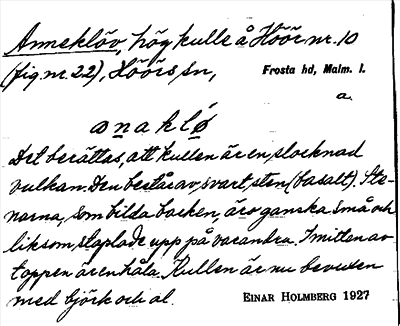 Anneklöv, hög kulle å Höör nr. 10
(fig. nr. 22), Höörs sn,
Frosta hd, Malm. l.
a.
anaklǿ
Det berättas, att kullen är en slocknad
vulkan. Den består av svart sten (basalt). Ste-
narna, som bilda backen, äro ganska små och
liksom staplade upp på varandra. I mitten av
toppen är en håla. Kullen är nu bevuxen
med björk och al.
EINAR HOLMBERG 1927